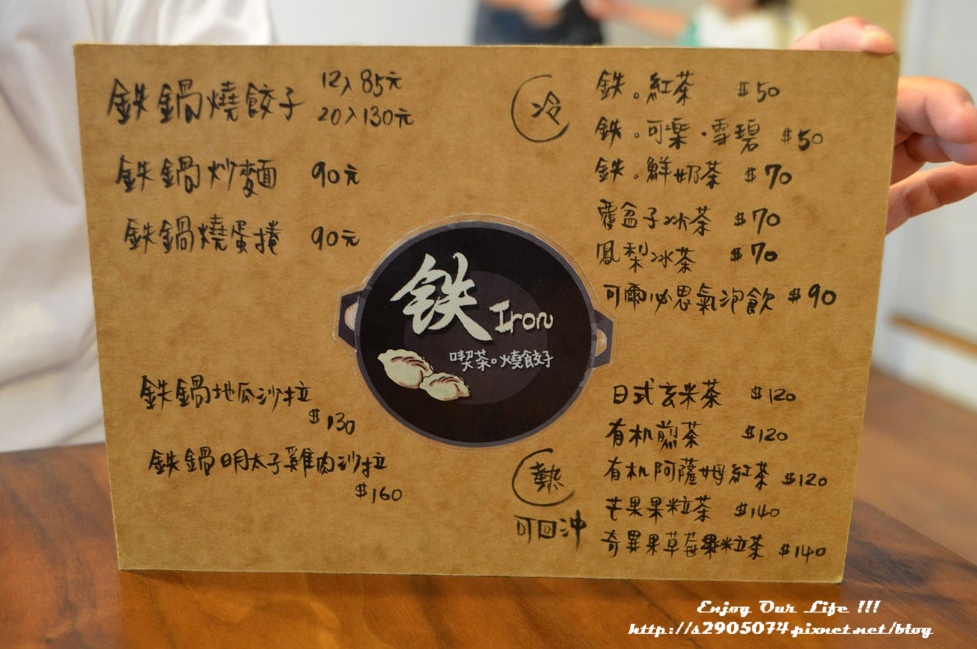 鉄鍋燒餃子 12入85元
20入130元
鉄鍋炒麵 90元
鉄鍋燒蛋捲 90元
鉄鍋地瓜沙拉
$130
鉄鍋明太子雞肉沙拉
$160
鉄 Iron
喫茶。燒餃子
冷
鉄。紅茶 $50
鉄。可樂·雪碧 $50
鉄。鮮奶茶 $70
覆盆子冰茶 $70
鳳梨冰茶 $70
可爾必思氣泡飲 $90
熱
可回沖
日式玄米茶 $120
有机煎茶 $120
有机阿薩姆紅茶 $120
芒果果粒茶 $140
奇異果草莓果粒茶 $140
Enjoy Our Life !!!
http://s2905074.pixnet.net/blog